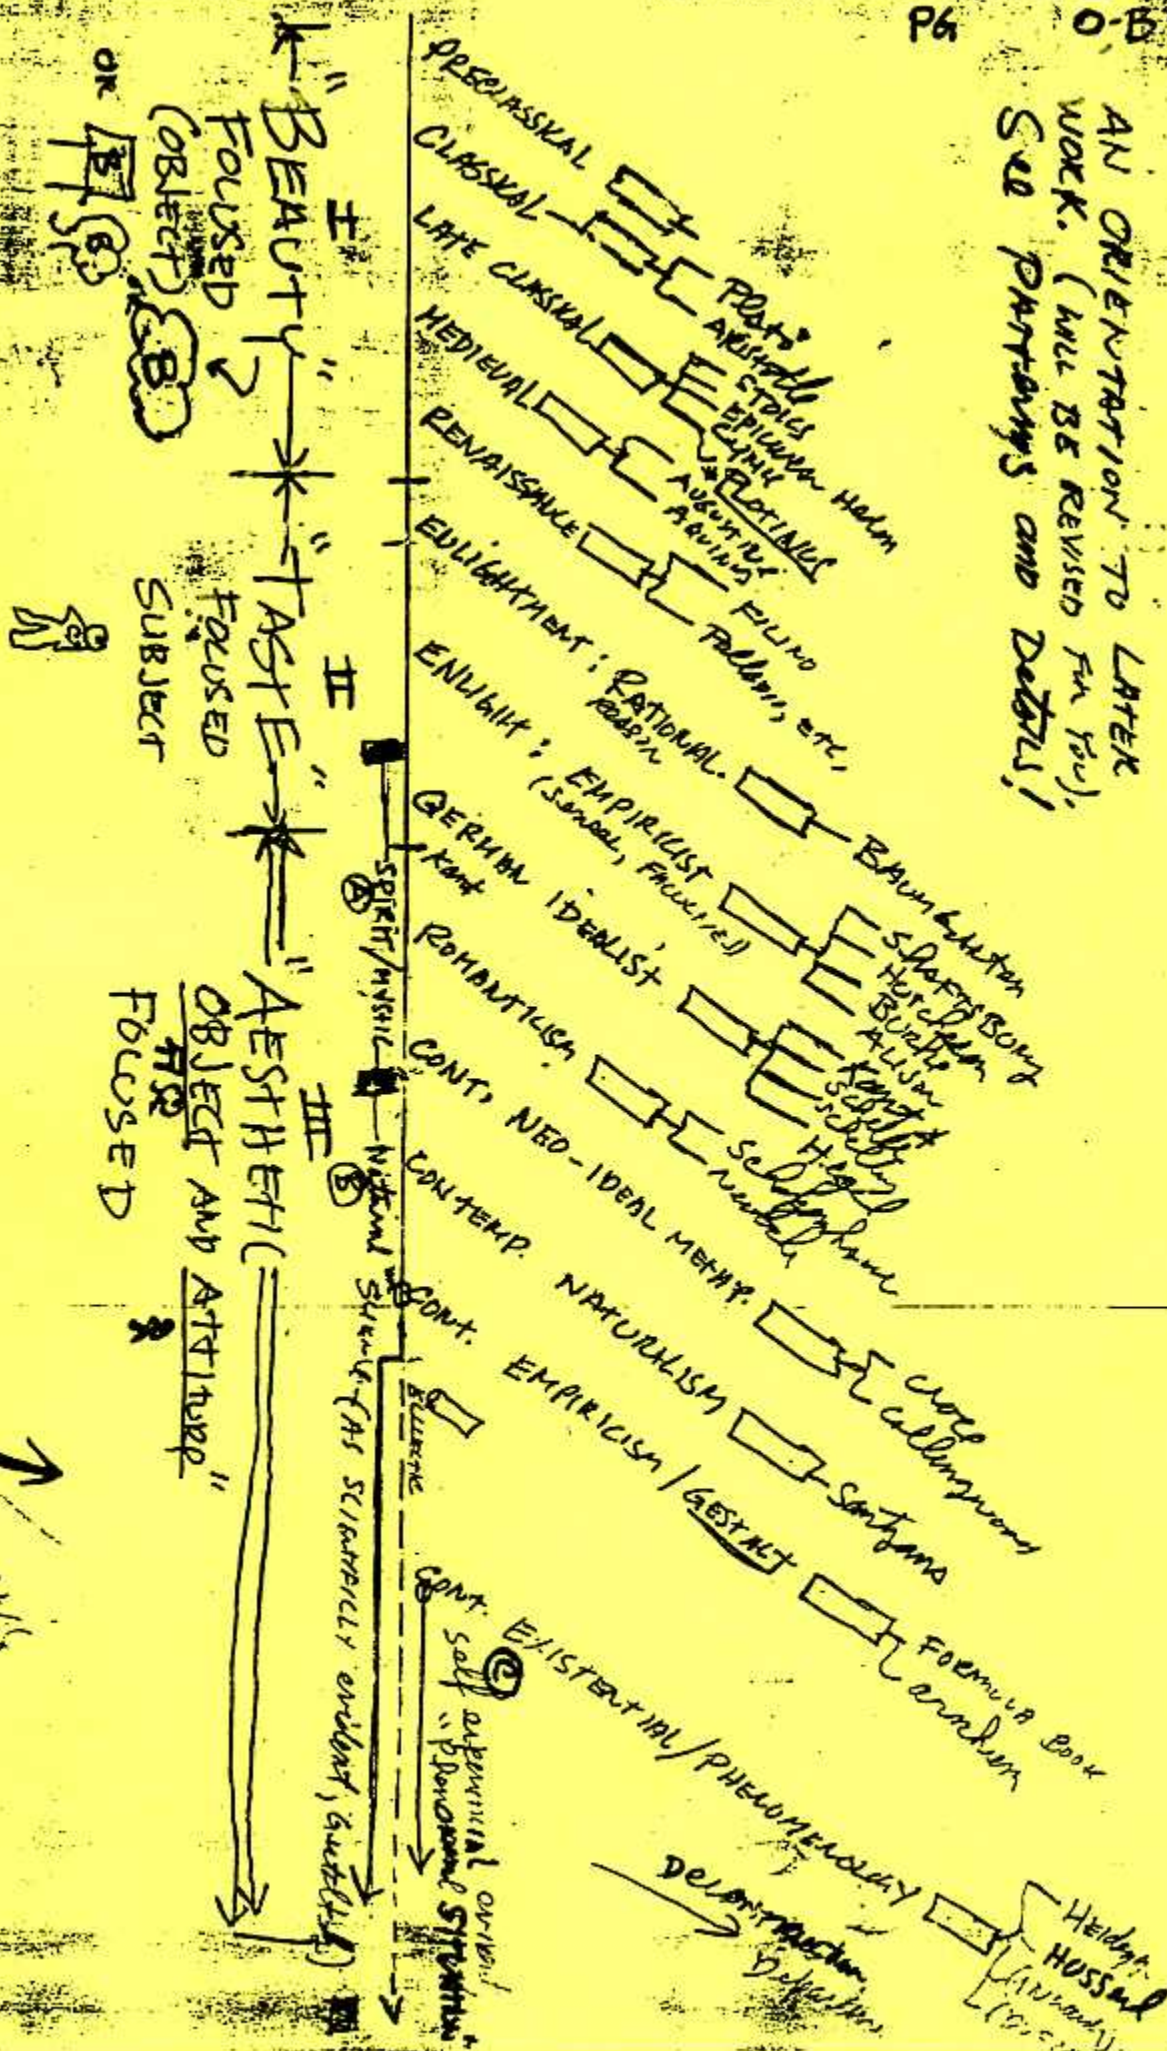 PG
O-B
AN ORIENTATION TO LATER
WORK. (WILL BE REVISED FOR YOU).
See PATTERNS and Details!
PRECLASSICAL
CLASSICAL
PLATO
ARISTOTLE
LATE CLASSICAL
STOICS
EPICUREAN Hedm
CYNIC
*PLOTINUS
MEDIEVAL
AUGUSTINE
AQUINAS
RENAISSANCE
FICINO
etc,
ENLIGHTMENT: RATIONAL.
Reason
BAUMGARTEN
ENLIGHT: EMPIRICIST
SHAFTSBURY
Hutcheson
Burke
Alison
GERMAN IDEALIST
Kant*
Schiller
Schelling
Hegel
ROMANTICISM
Schopenhauer
Nietzsche
CONT, NEO-IDEAL METAP.
CROCE
Collingwood
CONTEMP. NATURALISM
Santyana
CONT. EMPIRICISM/GESTALT
FORMULA BOOK
arnheim
CONT. EXISTENTIAL/PHENOMENOLOGY
Heidger
HUSSerl
Deconstruction
Kant
Ⓐ
SPIRIT/MYSTIC
Ⓑ
Natural
Science (AS SCIENTIFICLY evident, Gestalt)
ECLECTIC
Ⓒ
self experiencial
"Phenomenal SITUATION"
I
"BEAUTY"
FOCUSED
(OBJECT)
OR
B
B
B
II
"TASTE"
FOCUSED
SUBJECT
III
"AESTHETIC
OBJECT AND ATTITUDE"
FOCUSED